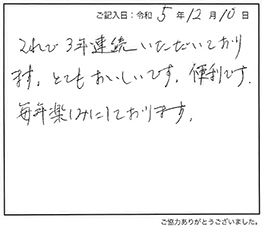 ご記入日：令和 5 年 12 月 10 日
これで3年連続いただいており
ます。とてもおいしいです。便利です。
毎年楽しみにしております。
ご協力ありがとうございました。